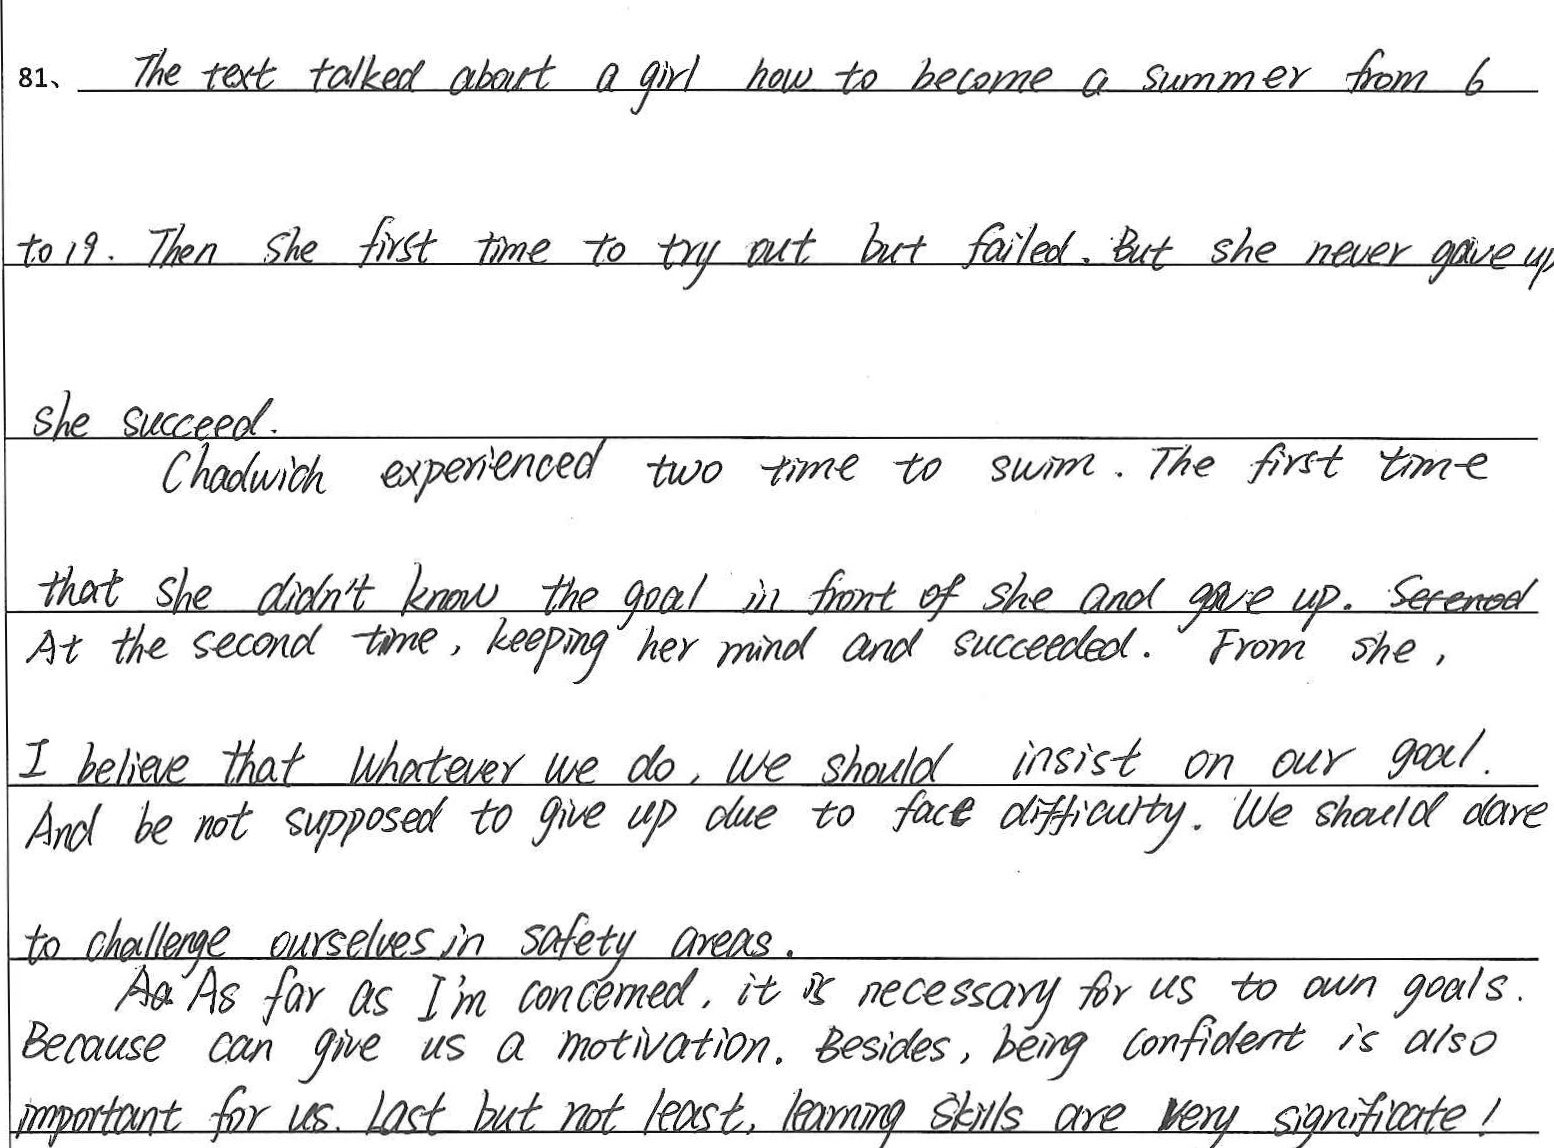 81、 The text talked about a girl how to become a summer from 6
to 19. Then she first time to try out but failed. But she never gave up
she succeed.
Chadwich experienced two time to swim. The first time
that she didn't know the goal in front of she and gave up.
At the second time, keeping her mind and succeeded. From she,
I believe that whatever we do, we should insist on our goal.
And be not supposed to give up due to face difficulty. We should dare
to challenge ourselves in safety areas.
As far as I'm concerned, it is necessary for us to own goals.
Because can give us a motivation. Besides, being confident is also
important for us. Last but not least, learning skills are very significate!